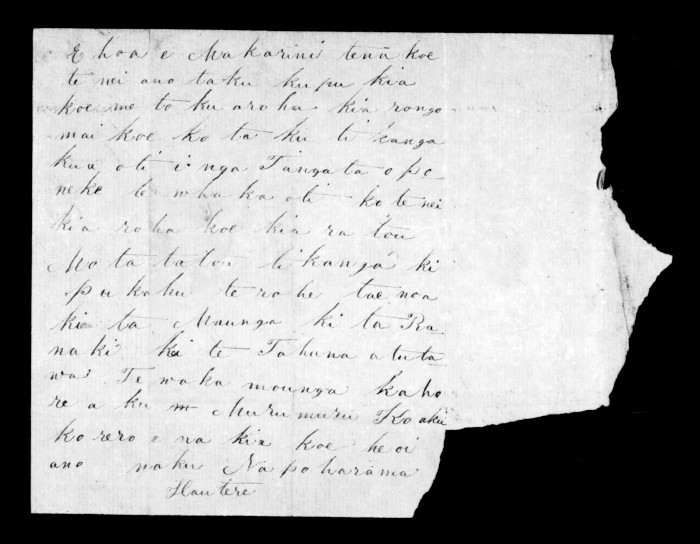 E hoa e Makarini tena koe
te nei ano taku kupu kia
koe me to ku aroha kia rongo
mai koe ko ta ku ti kanga
kua oti i nga Tangata o po
neke te wha ka oti ko te nei
kia roha koe kia ra tou
Mo ta tatou tikanga ki
pukahu te rohe tae noa
ki ta Maunga ki ta Ra
naki kei te Tahuna a tuta
wai Te waka mounga kaho
re a ku Murumuru Ko aku
korero e na kia koe heoi
ano naku Na poharama
Hautere